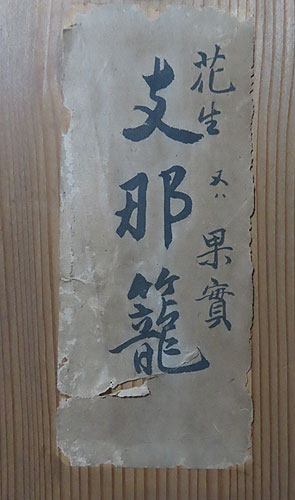 花生又ハ果實
支那籠